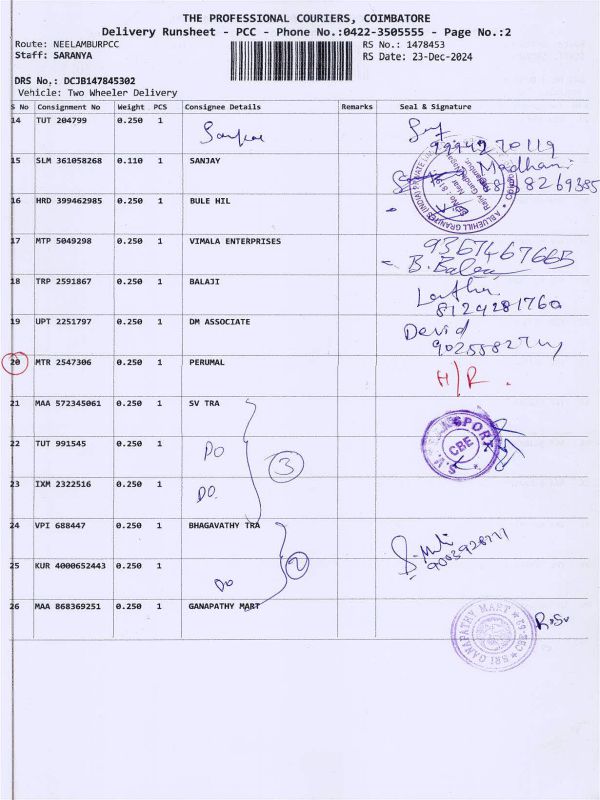 THE PROFESSIONAL COURIERS, COIMBATORE
Delivery Runsheet - PCC - Phone No.:0422-3505555 - Page No.:2
Route: NEELAMBURPCC RS No.: 1478453
Staff: SARANYA RS Date: 23-Dec-2024
DRS No.: DCJB147845302
Vehicle: Two Wheeler Delivery
S No Consignment No Weight PCS Consignee Details Remarks Seal & Signature
14 TUT 204799 0.250 1
9994270119
15 SLM 361058268 0.110 1 SANJAY Madhani
16 HRD 399462985 0.250 1 BULE HIL
17 MTP 5049298 0.250 1 VIMALA ENTERPRISES 9367467665
B. Balan
18 TRP 2591867 0.250 1 BALAJI Latha
8124281760
19 UPT 2251797 0.250 1 DM ASSOCIATE David
20 MTR 2547306 0.250 1 PERUMAL H/R.
21 MAA 572345061 0.250 1 SV TRA
S.V. TRANSPORT
CBE
22 TUT 991545 0.250 1 DO 3
23 IXM 2322516 0.250 1 DO.
24 VPI 688447 0.250 1 BHAGAVATHY TRA
25 KUR 4000652443 0.250 1 DO 2
26 MAA 868369251 0.250 1 GANAPATHY MART
SRI GANAPATHY MART R.S.